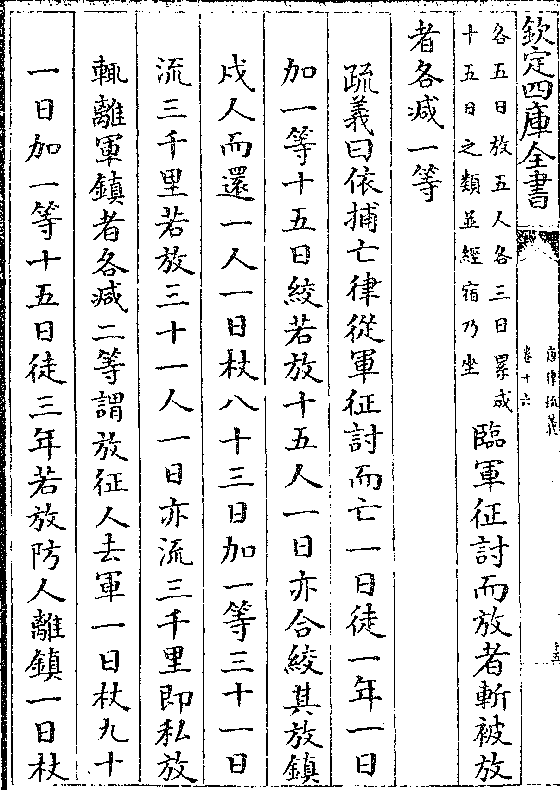 欽定四庫全書
唐律疏義
卷十六
各五日放五人各三日累成
十五日之類並經宿乃坐
臨軍征討而放者斬被放
者各減一等
疏義曰依捕亡律從軍征討而亡一日徒一年一日
加一等十五日絞若放十五人一日亦合絞其放鎮
戍人而還一人一日杖八十三日加一等三十一日
流三千里若放三十一人一日亦流三千里即私放
輒離軍鎮者各減二等謂放征人去軍一日杖九十
一日加一等十五日徒三年若放防人離鎮一日杖